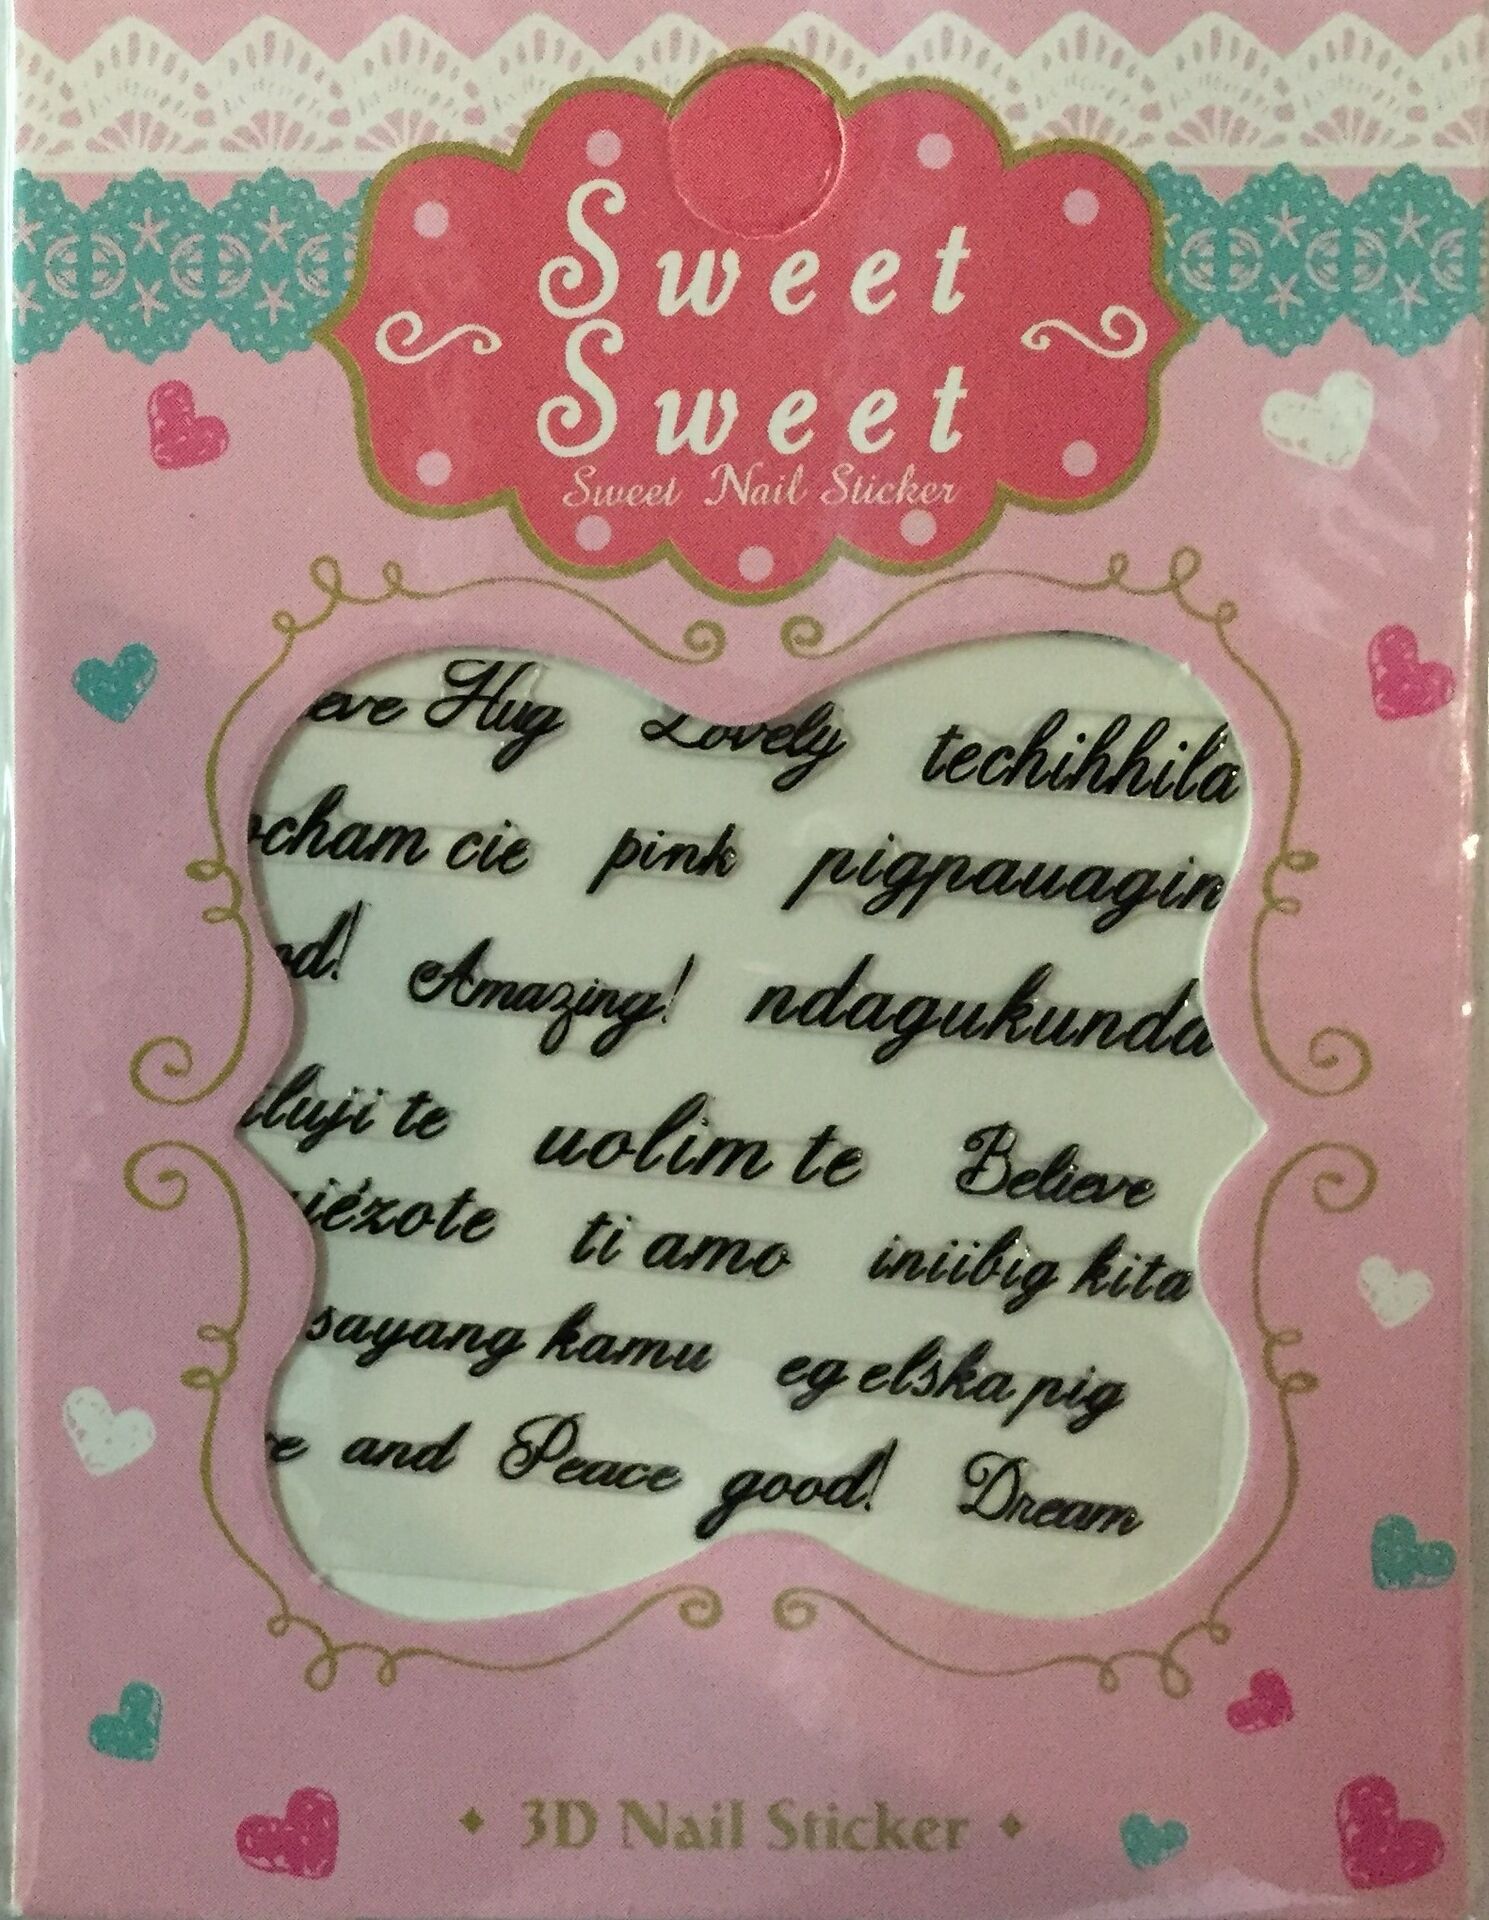 Sweet
Sweet
Sweet Nail Sticker
eve Hug Lovely techihhila
ocham cie pink pigpauagin
od! Amazing! ndagukunda
iluji te uolim te Believe
iézote ti amo iniibig kita
sayang kamu eg elska pig
e and Peace good! Dream
3D Nail Sticker